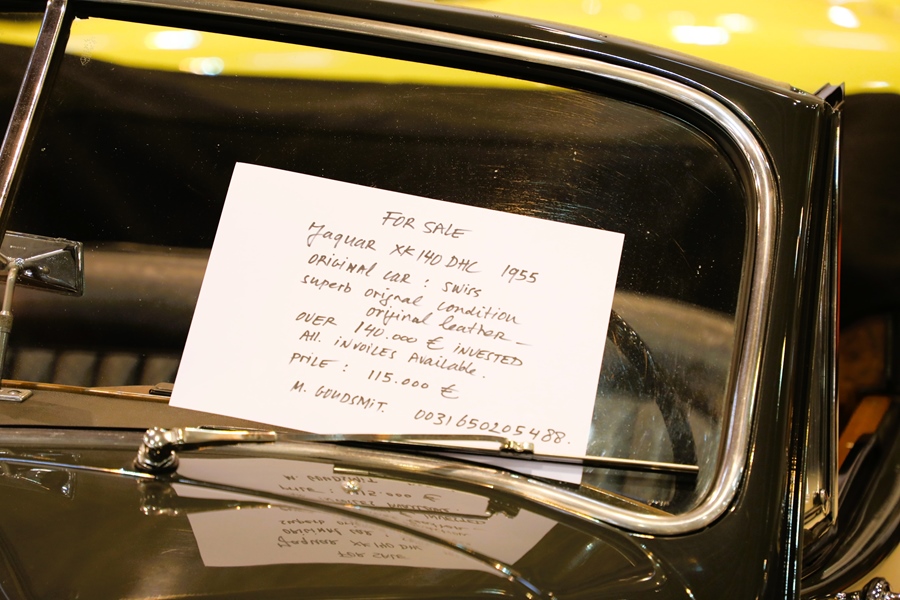 FOR SALE
Jaguar XK 140 DHC 1955
ORIGINAL CAR : SWISS
superb orignal condition
original leather -
OVER 140.000 € INVESTED
All INVOICES Available.
PRICE : 115.000 €
M. GOUDSMIT. 0031650205488.